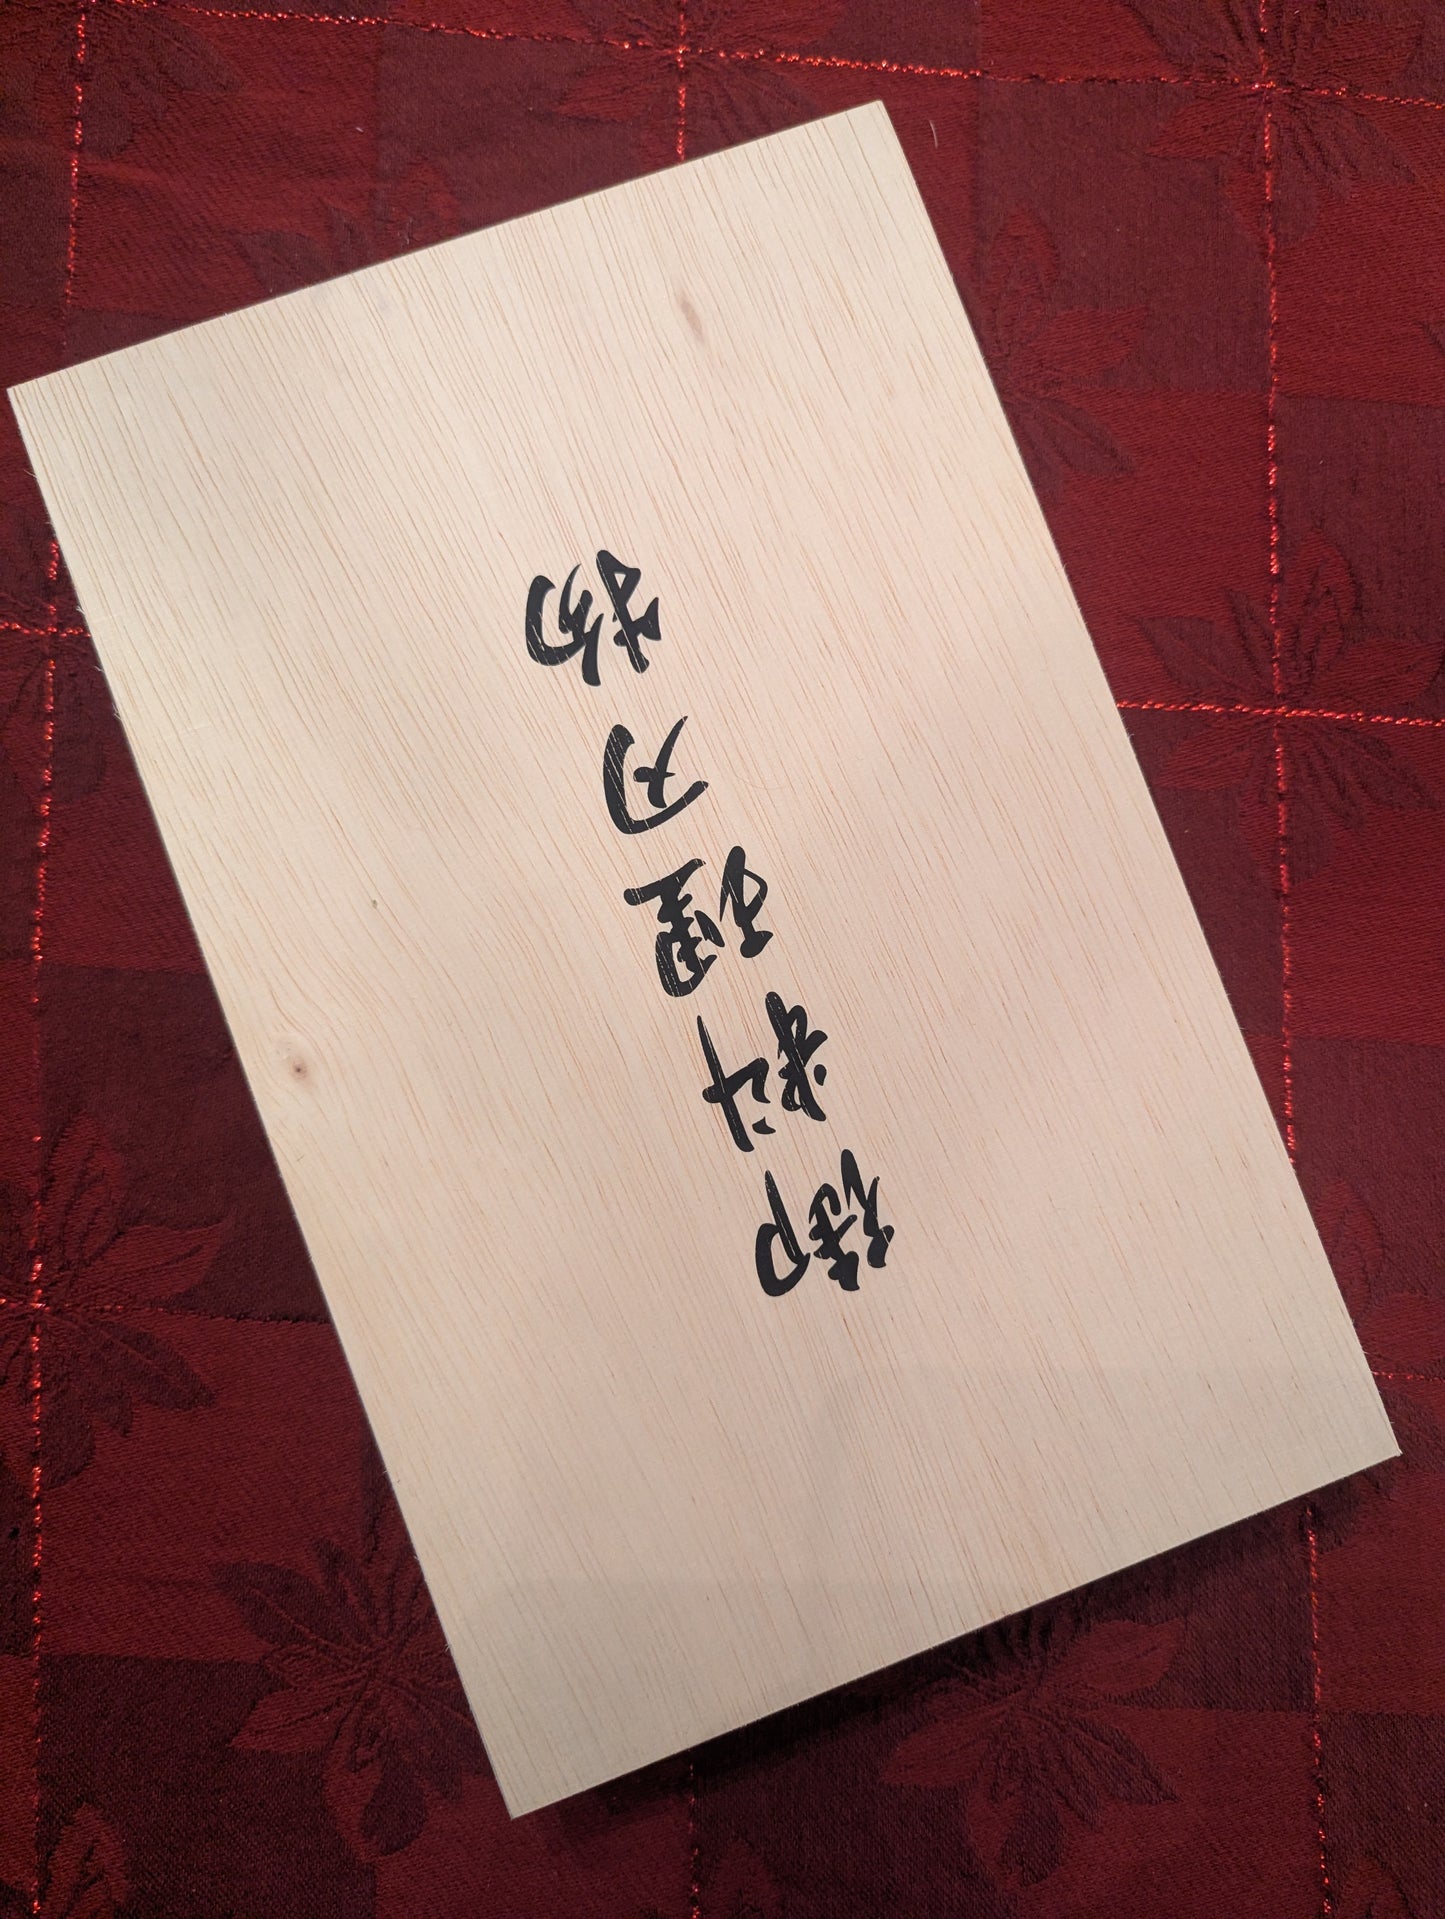 御料理刃物